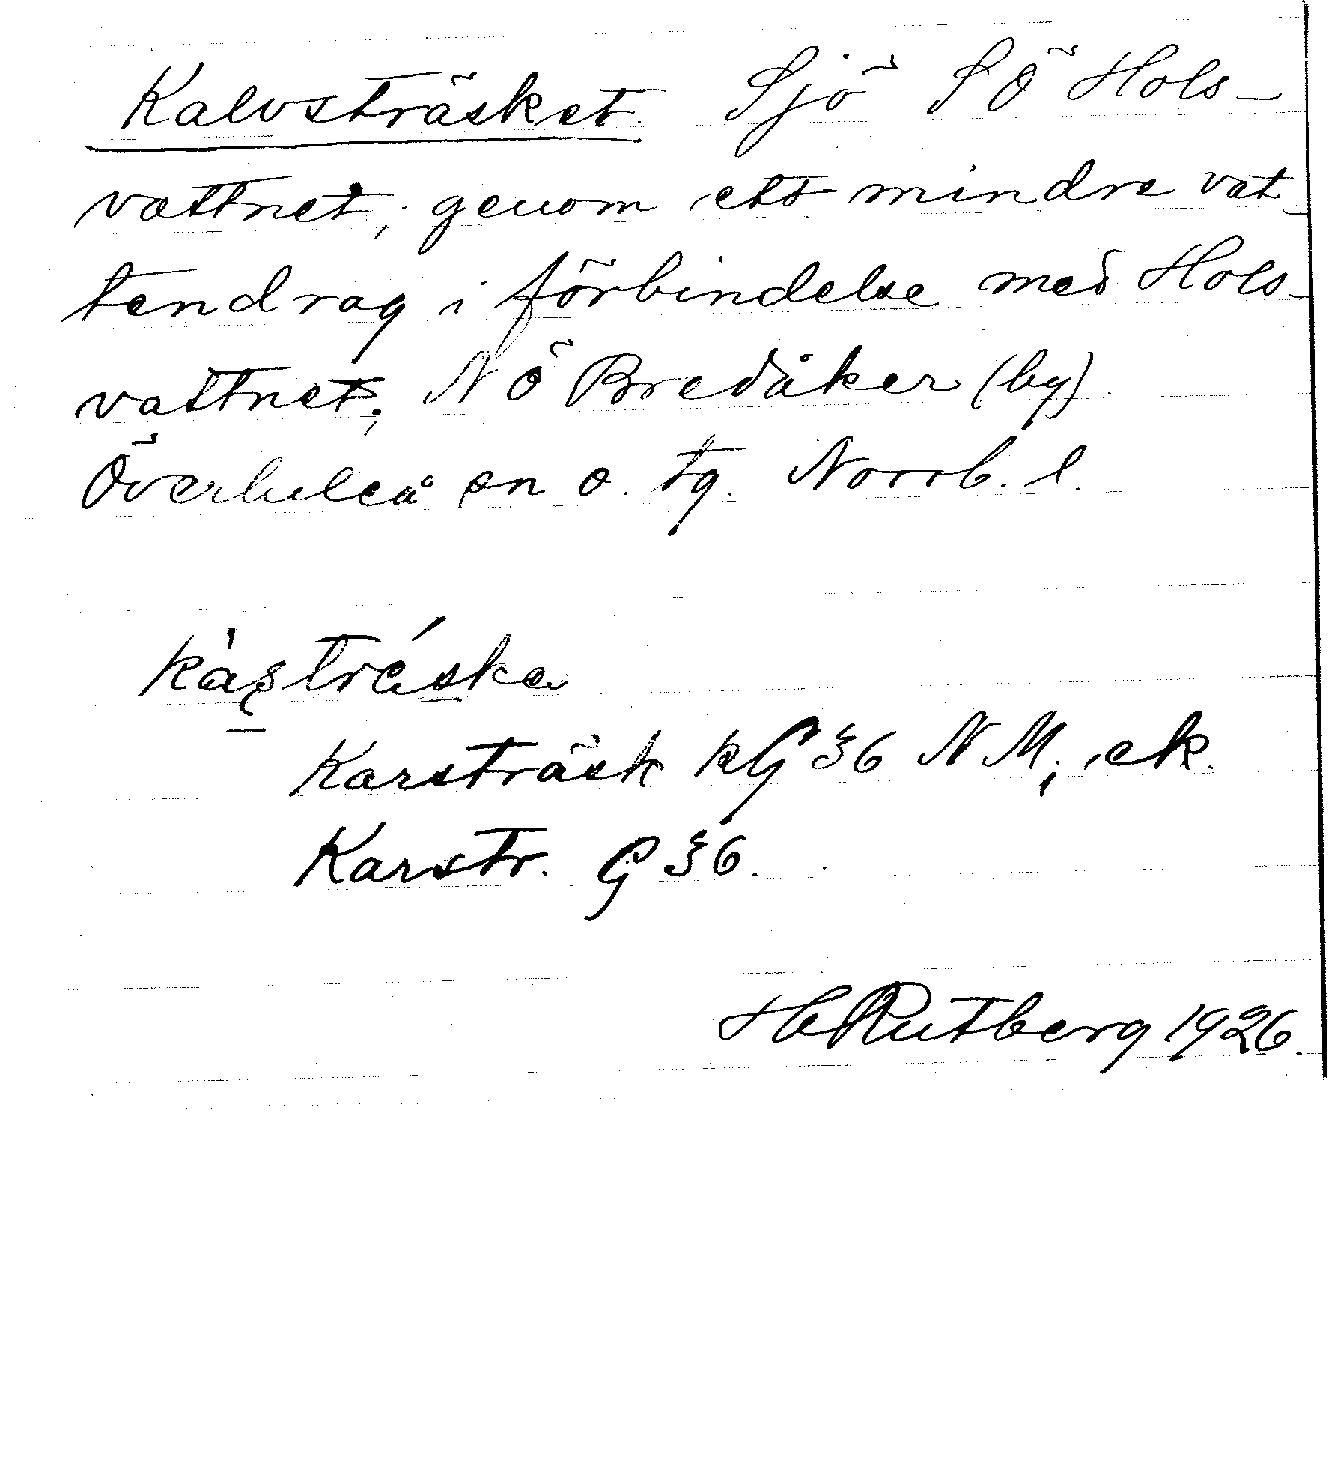 Kalvsträsket. Sjö SÖ Hols-
vattnet, genom ett mindre vat-
tendrag i förbindelse med Hols-
vattnet, NÖ Bredåker (by)
Överluleå sn o. tg. Norrb. l.
kàstráska
Karsträsk kG 36 NM; ek.
Karstr. G 36.
HRutberg 1926.